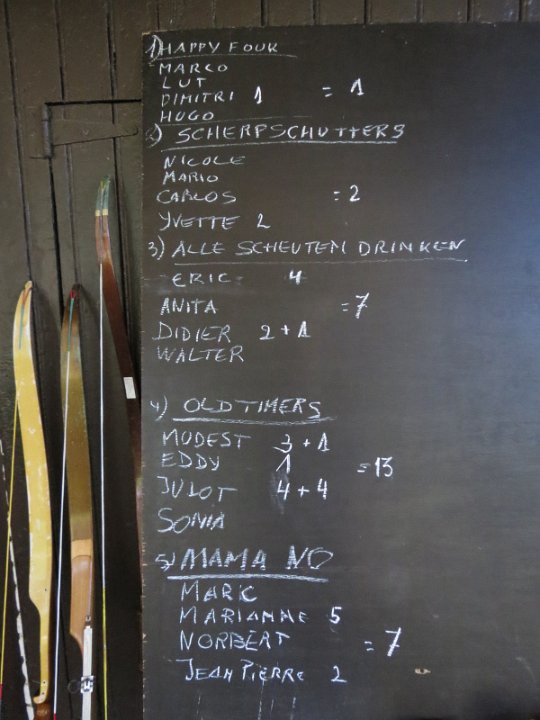 1) HAPPY FOUK
MARCO
LUT
DIMITRI 1 = 1
HUGO
2) SCHERPSCHUTTERS
NICOLE
MARIO
CARLOS = 2
YVETTE 2
3) ALLE SCHEUTEN DRINKEN
ERIC 4
ANITA = 7
DIDIER 2 + 1
WALTER
4) OLDTIMERS
MODEST 3 + 1
EDDY 1 = 13
JULOT 4 + 4
SONIA
5) MAMA NO
MARC
MARIANNE 5
NORBERT = 7
JEAN PIERRE 2